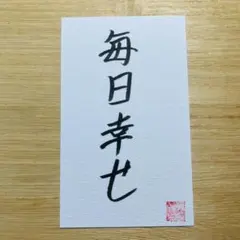 毎日幸せ